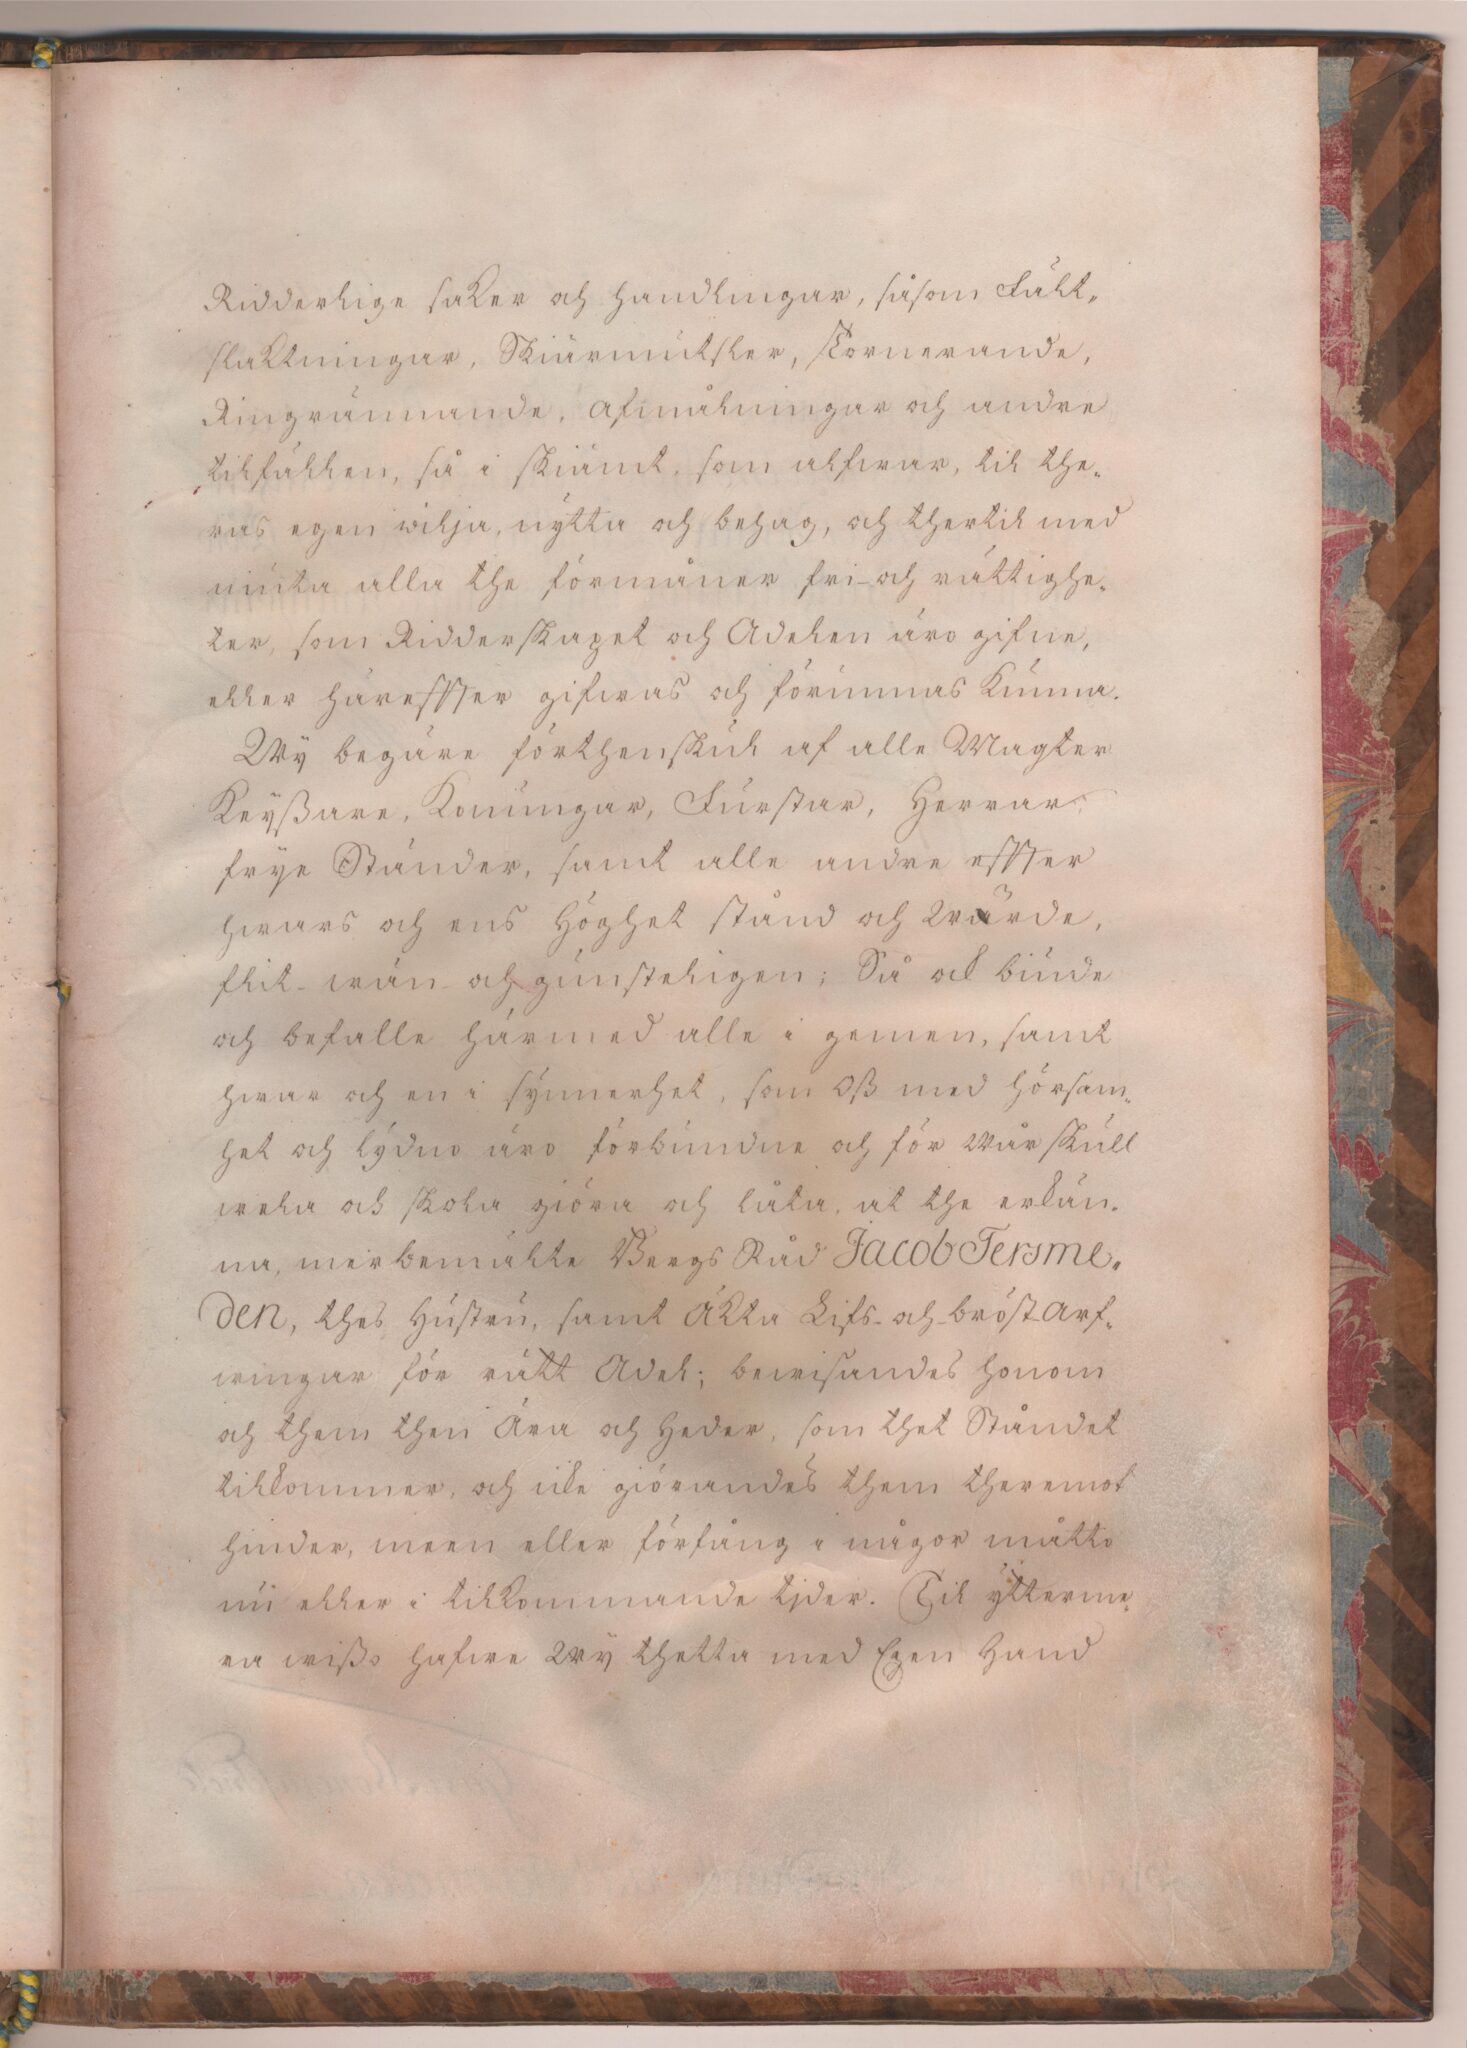 Ridderlige saker och handlingar, såsom Fält-
slaktningar, Skiärmutsler, Tornerande,
Ringrännande, afmålningar och andre
tilfällen, så i skiämt, som alfwar, til the-
ras egen wilja, nÿtta och behag, och thertil med
niuta alla the förmåner fri- och rättighe-
ter, som Ridderskapet och Adelen äro gifne,
eller häreffter gifwas och förunnas kunna.
Wÿ begäre förthenskul af alle Magter
Keÿßare, Konungar, Furstar, Herrar,
frye Ständer, samt alle andre effter
hwars och ens Höghet stånd och Wärde,
flit- wän- och gunsteligen; Så ock biude
och befalle härmed alle i gemen, samt
hwar och en i sÿnnerhet, som Oß med hörsam-
het och lÿdno äro förbundne och för Wår skull
wela och skola giöra och låta, at the erkän-
na, merbemälte Bergs Råd Jacob Tersme-
den, thes Hustru, samt Äkta Lifs- och bröst Arf-
wingar för rätt Adel; bewisandes honom
och them then Ära och Heder, som thet Ståndet
tilkommer, och icke giörandes them theremot
hinder, meen eller förfång i någor måtto
nu eller i tilkommande tjder. Til ÿtterme-
ra wißo hafwe Wÿ thetta med Egen Hand